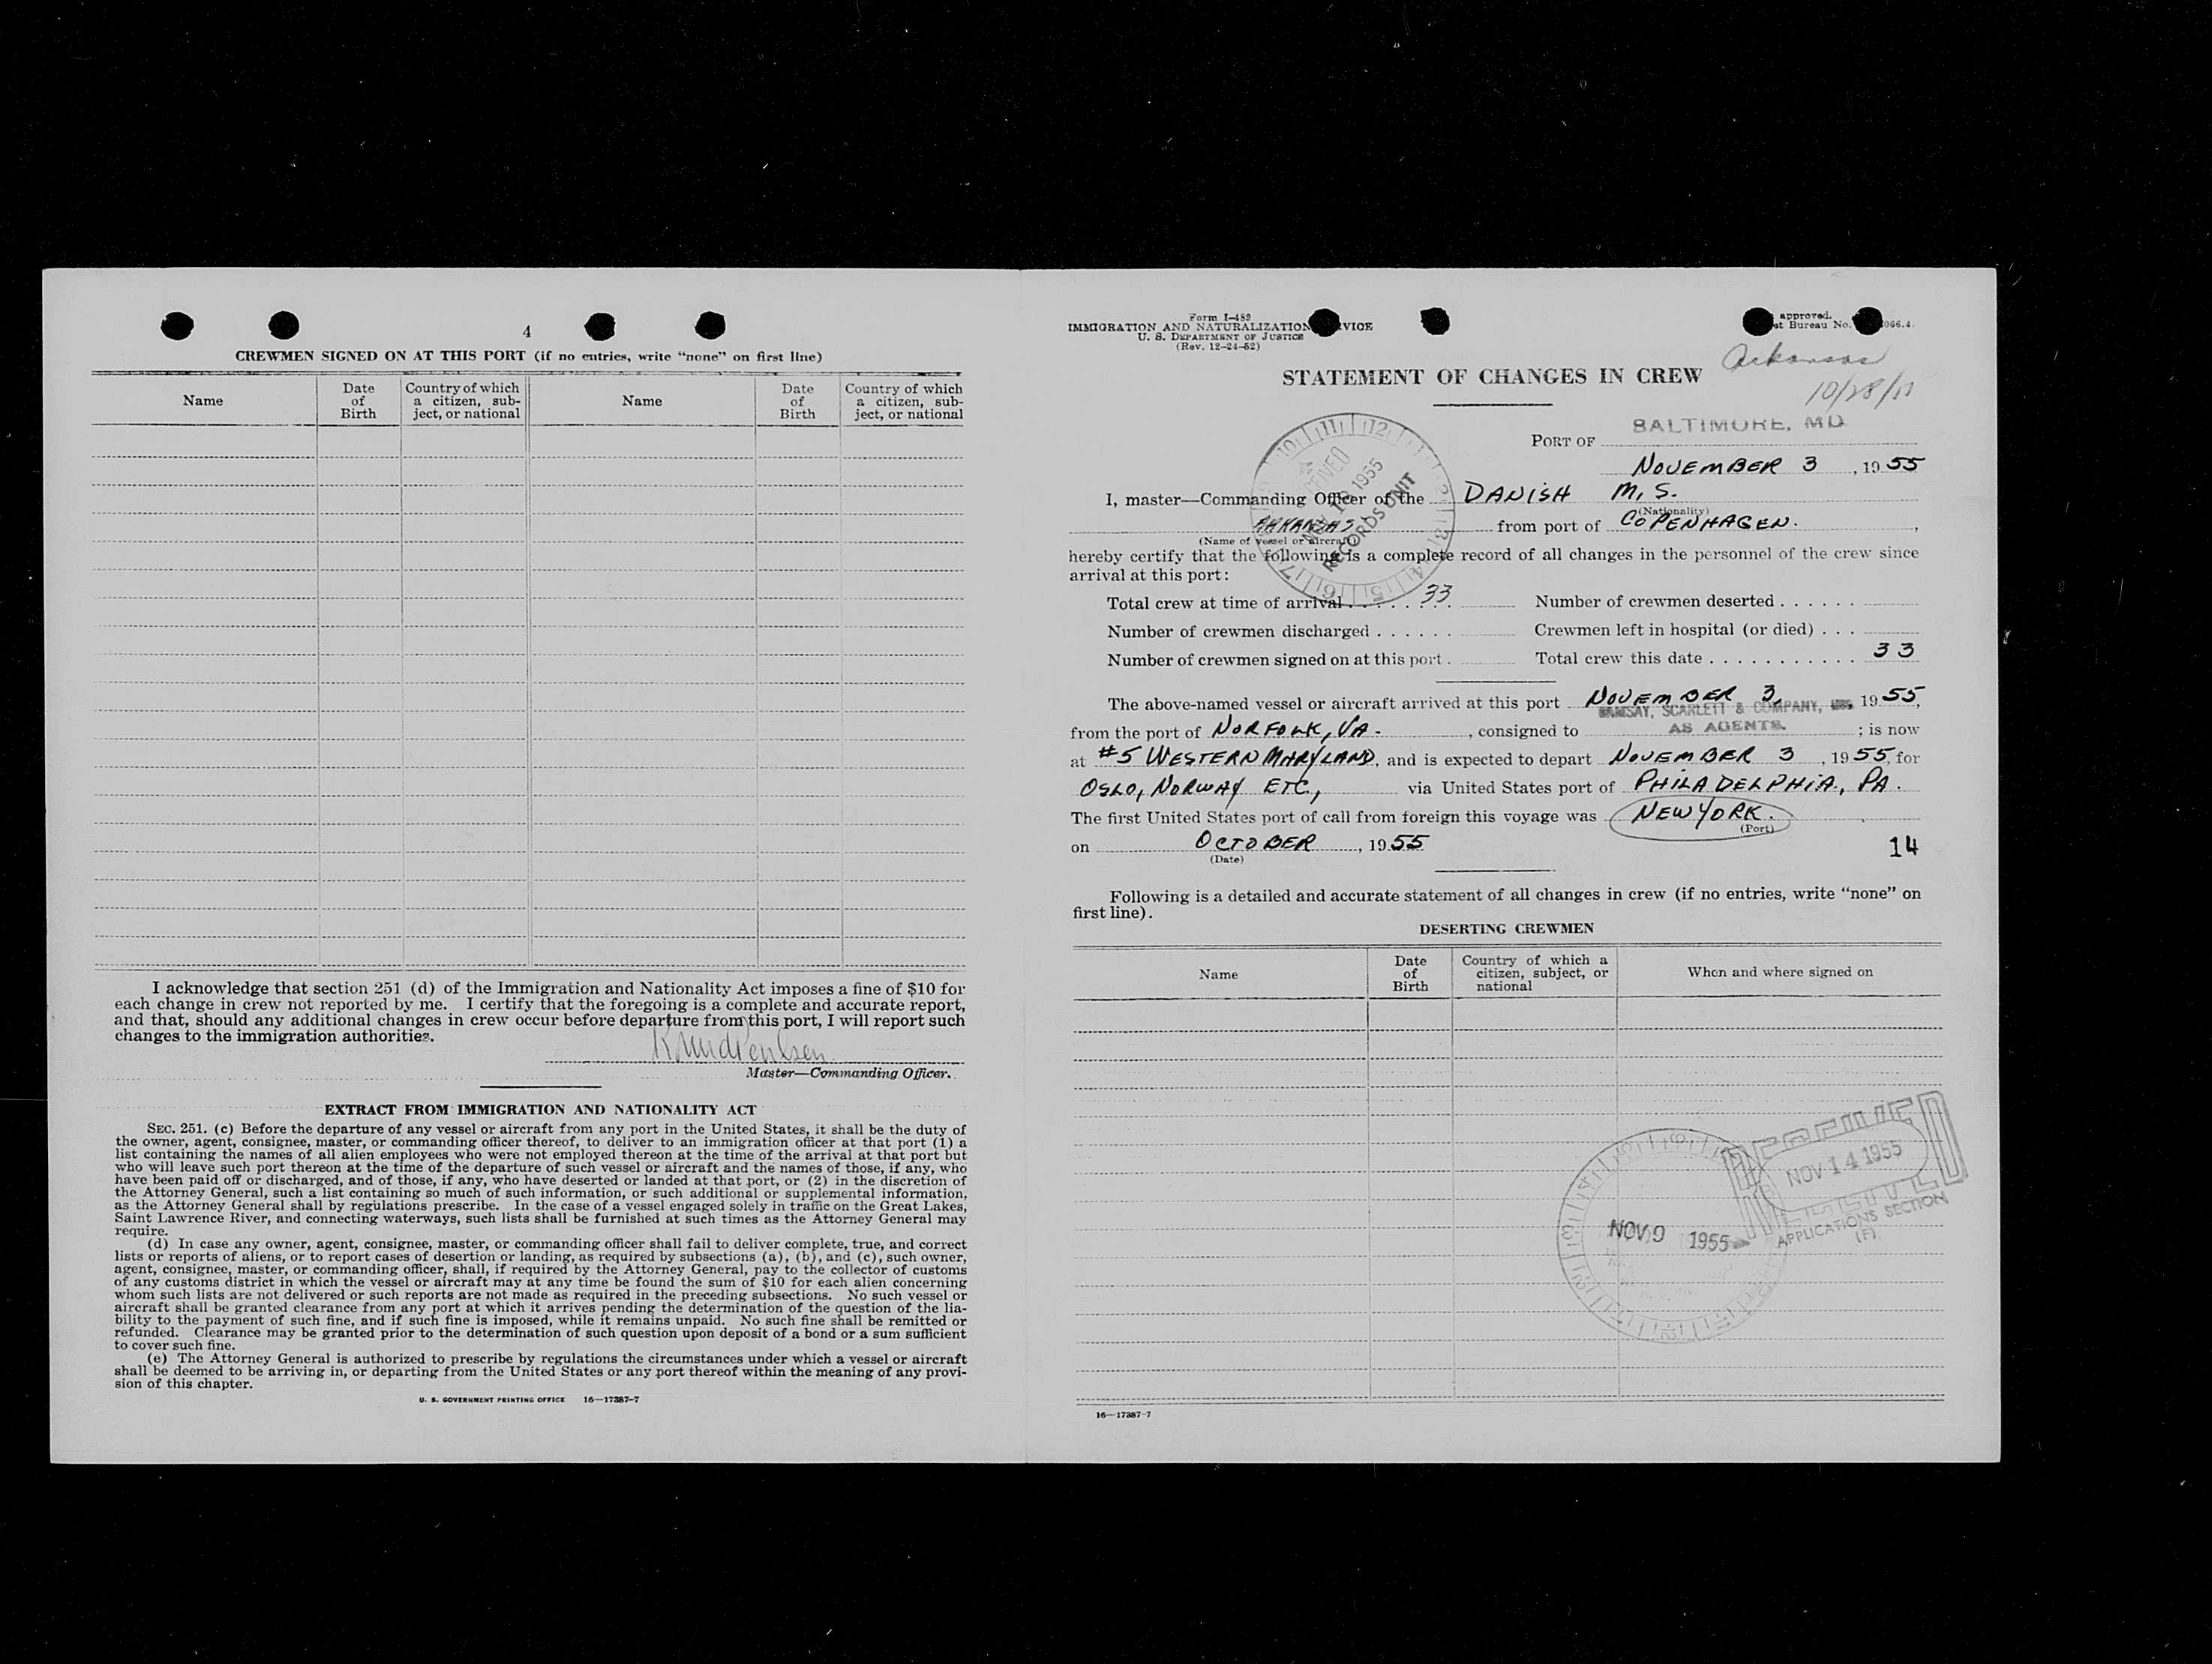 4
CREWMEN SIGNED ON AT THIS PORT (if no entries, write “none” on first line)
Name
Date of Birth
Country of which a citizen, sub-ject, or national
Name
Date of Birth
Country of which a citizen, sub-ject, or national
I acknowledge that section 251 (d) of the Immigration and Nationality Act imposes a fine of $10 for
each change in crew not reported by me. I certify that the foregoing is a complete and accurate report,
and that, should any additional changes in crew occur before departure from this port, I will report such
changes to the immigration authorities.
Master—Commanding Officer.
EXTRACT FROM IMMIGRATION AND NATIONALITY ACT
SEC. 251. (c) Before the departure of any vessel or aircraft from any port in the United States, it shall be the duty of
the owner, agent, consignee, master, or commanding officer thereof, to deliver to an immigration officer at that port (1) a
list containing the names of all alien employees who were not employed thereon at the time of the arrival at that port but
who will leave such port thereon at the time of the departure of such vessel or aircraft and the names of those, if any, who
have been paid off or discharged, and of those, if any, who have deserted or landed at that port, or (2) in the discretion of
the Attorney General, such a list containing so much of such information, or such additional or supplemental information,
as the Attorney General shall by regulations prescribe. In the case of a vessel engaged solely in traffic on the Great Lakes,
Saint Lawrence River, and connecting waterways, such lists shall be furnished at such times as the Attorney General may
require.
(d) In case any owner, agent, consignee, master, or commanding officer shall fail to deliver complete, true, and correct
lists or reports of aliens, or to report cases of desertion or landing, as required by subsections (a), (b), and (c), such owner,
agent, consignee, master, or commanding officer, shall, if required by the Attorney General, pay to the collector of customs
of any customs district in which the vessel or aircraft may at any time be found the sum of $10 for each alien concerning
whom such lists are not delivered or such reports are not made as required in the preceding subsections. No such vessel or
aircraft shall be granted clearance from any port at which it arrives pending the determination of the question of the lia-
bility to the payment of such fine, and if such fine is imposed, while it remains unpaid. No such fine shall be remitted or
refunded. Clearance may be granted prior to the determination of such question upon deposit of a bond or a sum sufficient
to cover such fine.
(e) The Attorney General is authorized to prescribe by regulations the circumstances under which a vessel or aircraft
shall be deemed to be arriving in, or departing from the United States or any port thereof within the meaning of any provi-
sion of this chapter.
U. S. GOVERNMENT PRINTING OFFICE 16—17387-7
Form I-489
IMMIGRATION AND NATURALIZATION VICE
U. S. DEPARTMENT OF JUSTICE
(Rev. 12-24-52)
approved.
et Bureau No. 066.4.
Arkansas
10/28/
STATEMENT OF CHANGES IN CREW
PORT OF BALTIMORE, MD
NOVEMBER 3, 1955
I, master—Commanding Officer of the DANISH M.S.
(Nationality)
ARKANSAS from port of COPENHAGEN.,
(Name of vessel or aircraft)
hereby certify that the following is a complete record of all changes in the personnel of the crew since
arrival at this port:
Total crew at time of arrival . . . . . . 33 Number of crewmen deserted . . . . . .
Number of crewmen discharged . . . . . . Crewmen left in hospital (or died) . . .
Number of crewmen signed on at this port . Total crew this date . . . . . . . . . . . 33
The above-named vessel or aircraft arrived at this port NOVEMBER 3, 1955,
RAMSAY, SCARLETT & COMPANY,
from the port of NORFOLK, VA. , consigned to AS AGENTS. ; is now
at #5 WESTERN MARYLAND, and is expected to depart NOVEMBER 3, 1955, for
OSLO, NORWAY ETC., via United States port of PHILADELPHIA., PA.
The first United States port of call from foreign this voyage was NEW YORK.
(Port)
on OCTOBER, 1955
(Date)
14
Following is a detailed and accurate statement of all changes in crew (if no entries, write “none” on
first line).
DESERTING CREWMEN
Name
Date of Birth
Country of which a citizen, subject, or national
When and where signed on
1955
RECORDS UNIT
NOV 9 1955
NOV 14 1955
APPLICATIONS SECTION
(F)
16—17387-7